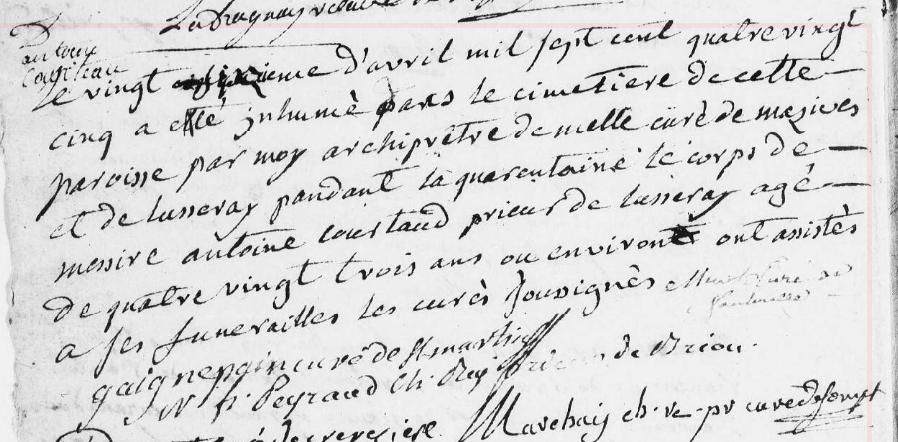 antoine
le vingt sixieme d'avril mil sept cent quatre vingt
cinq a eté inhumé dans le cimetiere de cette
paroisse par moy archiprêtre de melle curé de mazieres
et de lusseray pandant la quarentaine le corps de
messire antoine courtaud prieur de lusseray agé
de quatre vingt trois ans ou environ ont assistés
a ses funerailles les curés soussignés
gaignepain curé de st martin
Peyraud de Briou
Marchais ch. re. pr curé de sompt